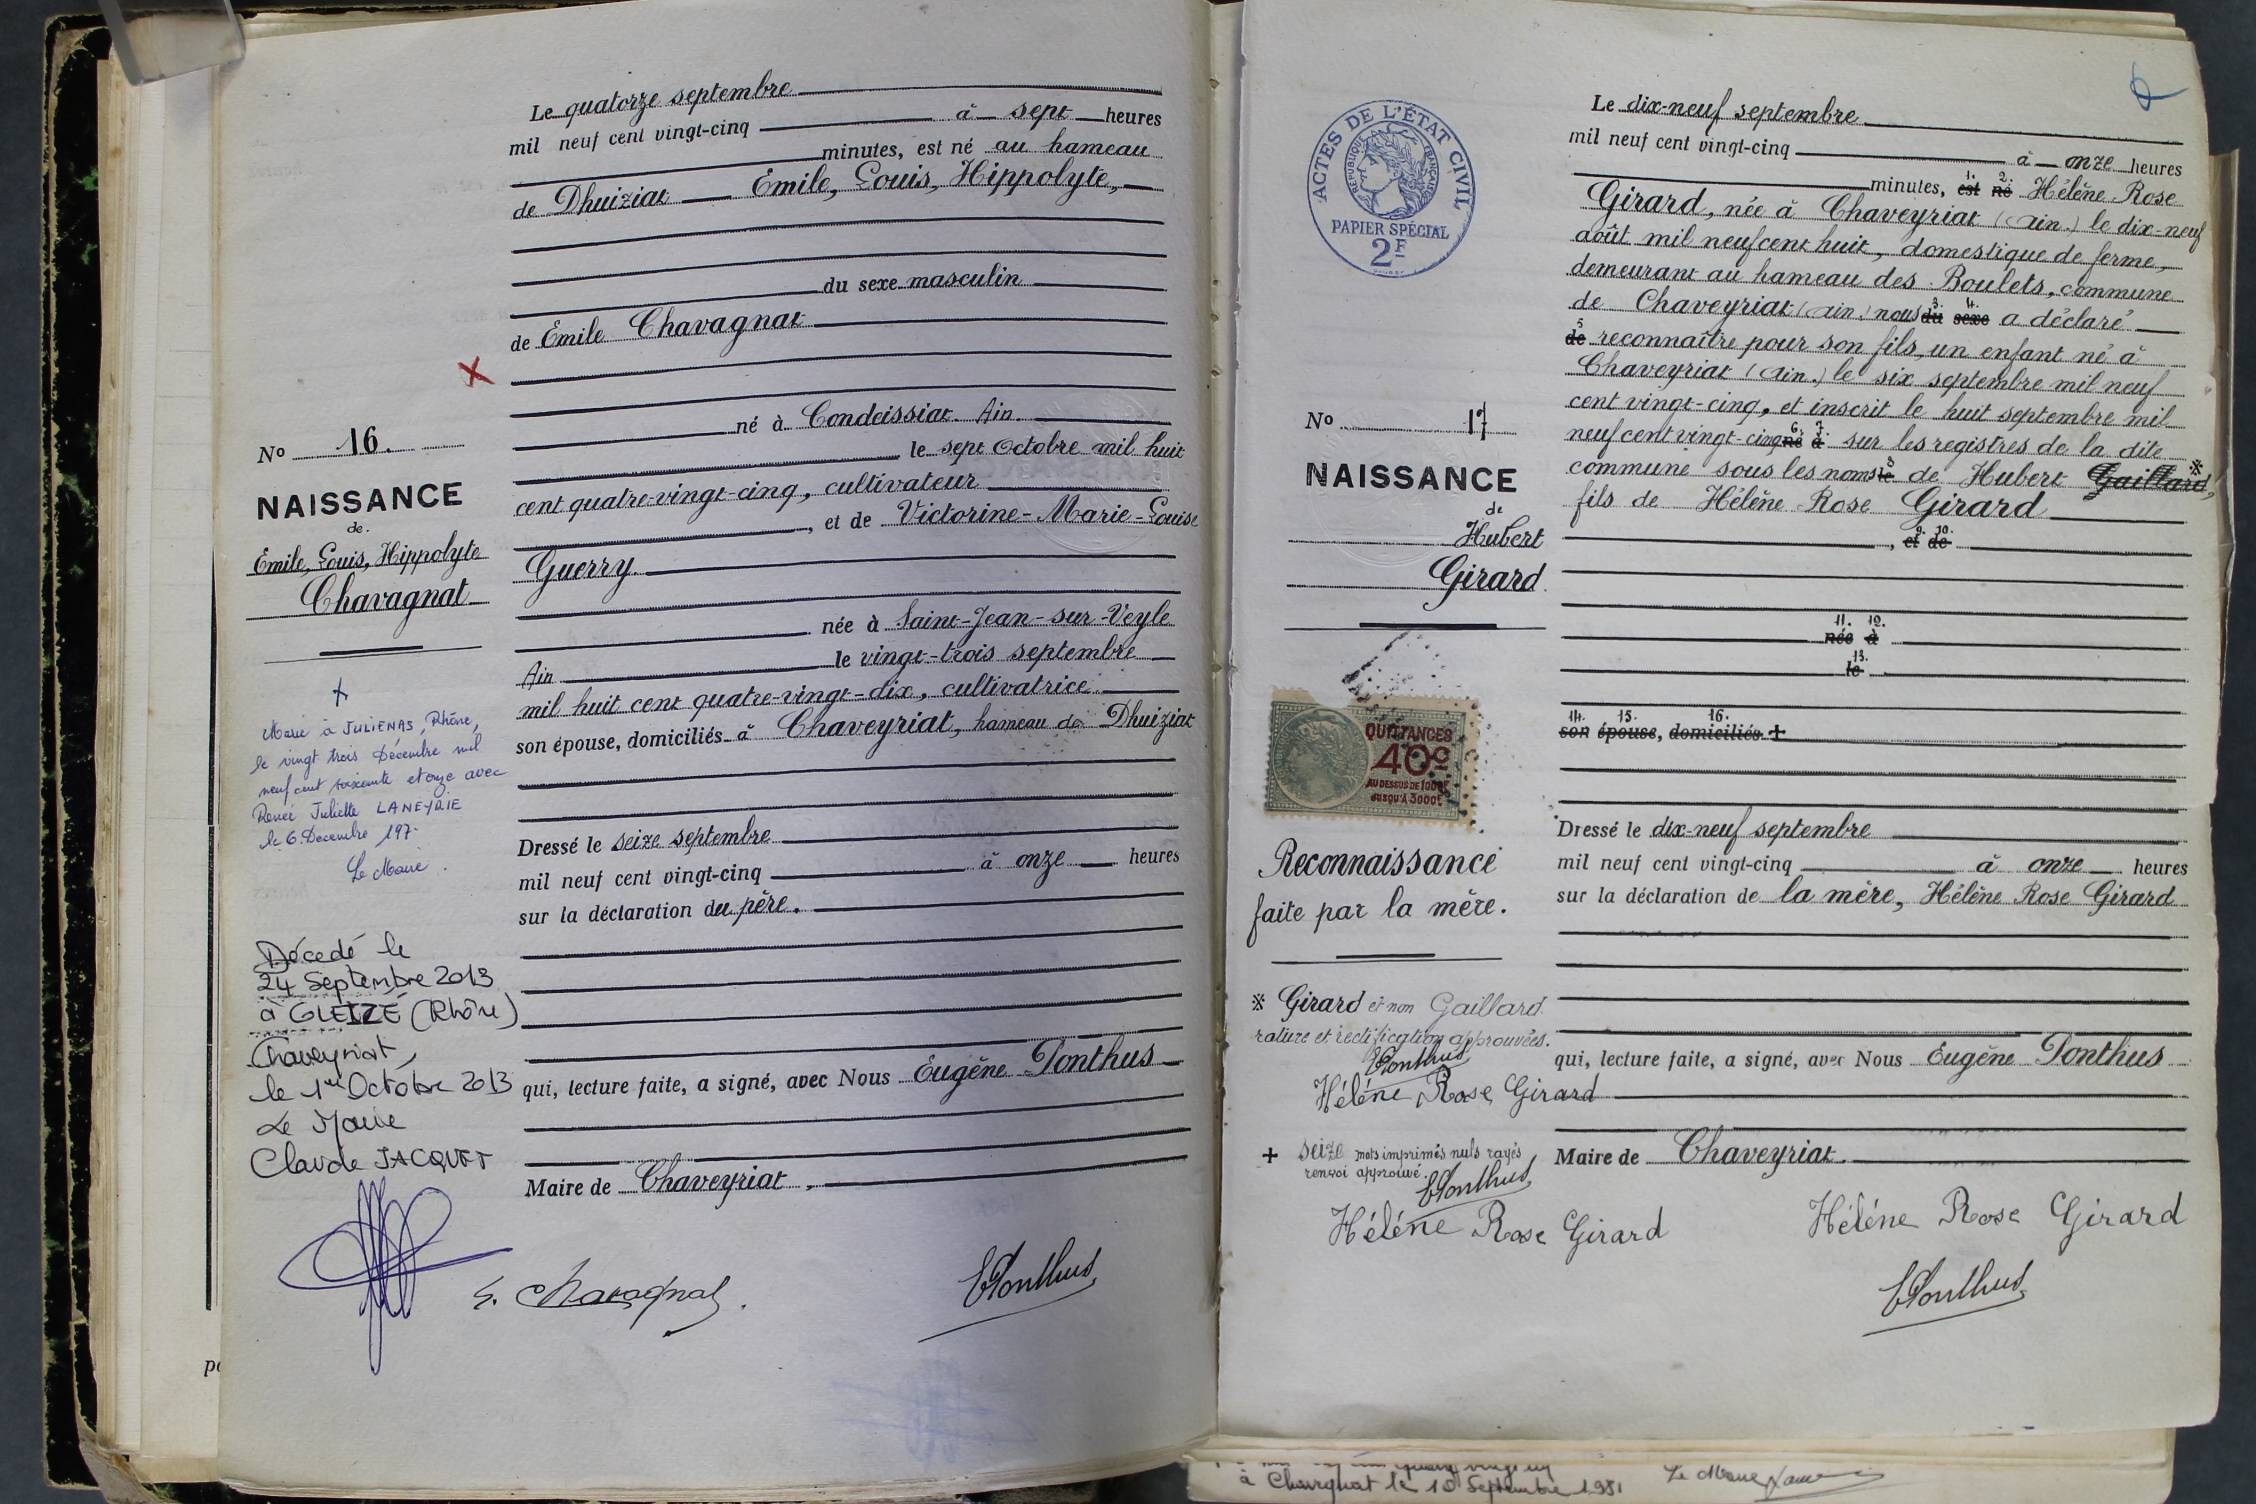 Le quatorze septembre
mil neuf cent vingt-cinq à sept heures
minutes, est né au hameau
de Dhuiziat Émile, Louis, Hippolyte,
du sexe masculin
de Émile Chavagnat
né à Condeissiat Ain
le sept octobre mil huit
cent quatre-vingt-cinq, cultivateur
, et de Victorine-Marie-Louise
Guerry
née à Saint-Jean-sur-Veyle
Ain le vingt-trois septembre
mil huit cent quatre-vingt-dix, cultivatrice
son épouse, domiciliés à Chaveyriat, hameau de Dhuiziat
Dressé le seize septembre
mil neuf cent vingt-cinq à onze heures
sur la déclaration du père.
qui, lecture faite, a signé, avec Nous Eugène Ponthus
Maire de Chaveyriat.
E. Chavagnat.
EPonthus
No 16.
NAISSANCE
de
Émile, Louis, Hippolyte
Chavagnat
Marié à JULIENAS, Rhône,
le vingt trois Décembre mil
neuf cent soixante et onze avec
Renée Juliette LANEYRIE
le 6 Décembre 197
Le Maire.
Décédé le
24 Septembre 2013
à GLEIZÉ (Rhône)
Chaveyriat,
le 1er Octobre 2013
Le Maire
Claude JACQUET
ACTES DE L'ÉTAT CIVIL
RÉPUBLIQUE FRANÇAISE
PAPIER SPÉCIAL
2F
Le dix-neuf septembre
mil neuf cent vingt-cinq à onze heures
1. 2.
minutes, est né Hélène Rose
Girard, née à Chaveyriat (Ain.) le dix-neuf
août mil neuf cent huit, domestique de ferme,
demeurant au hameau des Boulets, commune
3. 4.
de Chaveyriat (Ain.) nous du sexe a déclaré
5
de reconnaître pour son fils, un enfant né à
Chaveyriat (Ain.) le six septembre mil neuf
cent vingt-cinq, et inscrit le huit septembre mil
6. 7.
neuf cent vingt-cinq né à sur les registres de la dite
8
commune sous les noms le de Hubert Gaillard, ※
fils de Hélène Rose Girard
9. 10.
, et de
11. 12.
née à
13.
le
14. 15. 16.
son épouse, domiciliés +
Dressé le dix-neuf septembre
mil neuf cent vingt-cinq à onze heures
sur la déclaration de la mère, Hélène Rose Girard
qui, lecture faite, a signé, avec Nous Eugène Ponthus
Maire de Chaveyriat.
Hélène Rose Girard
EPonthus
No 17
NAISSANCE
de
Hubert
Girard.
QUITTANCES
40c
AU DESSUS DE 1000F
JUSQU'À 3000F
Reconnaissance
faite par la mère.
※ Girard et non Gaillard.
rature et rectification approuvées.
EPonthus
Hélène Rose Girard
+ seize mots imprimés nuls rayés
renvoi approuvé.
EPonthus
Hélène Rose Girard
à Chavagnat le 10 Septembre 1981
Le Maire